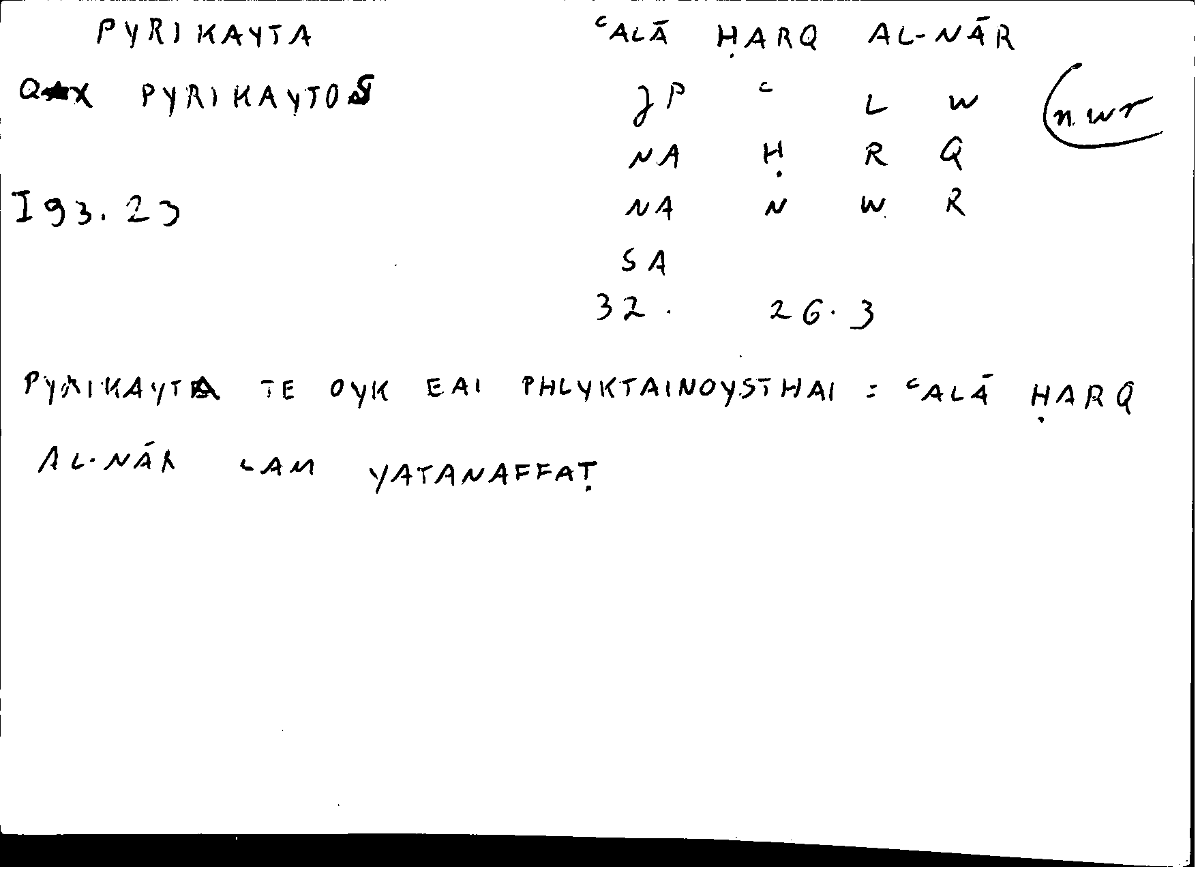 PYRIKAYTA ʿALĀ ḤARQ AL-NĀR
QAX PYRIKAYTOS JP ʿ L W (nwr
NA Ḥ R Q
I 93.23 NA N W R
SA
32. 26.3
PYRIKAYTA TE OYK EAI PHLYKTAINOYSTHAI = ʿALĀ ḤARQ
AL-NĀR LAM YATANAFFAṬ